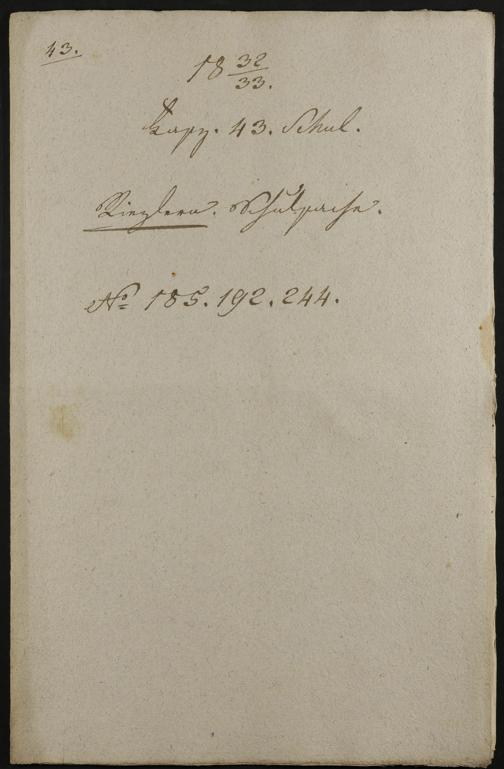 43.
18 32/33.
Fasz. 43. Schul.
Riezlern. Schulsache.
No 185. 192. 244.